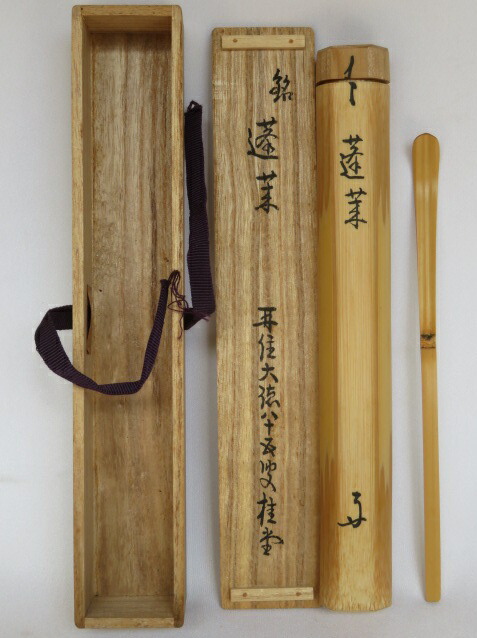 銘
蓬莱
再住大徳八十五叟桂堂
蓬莱